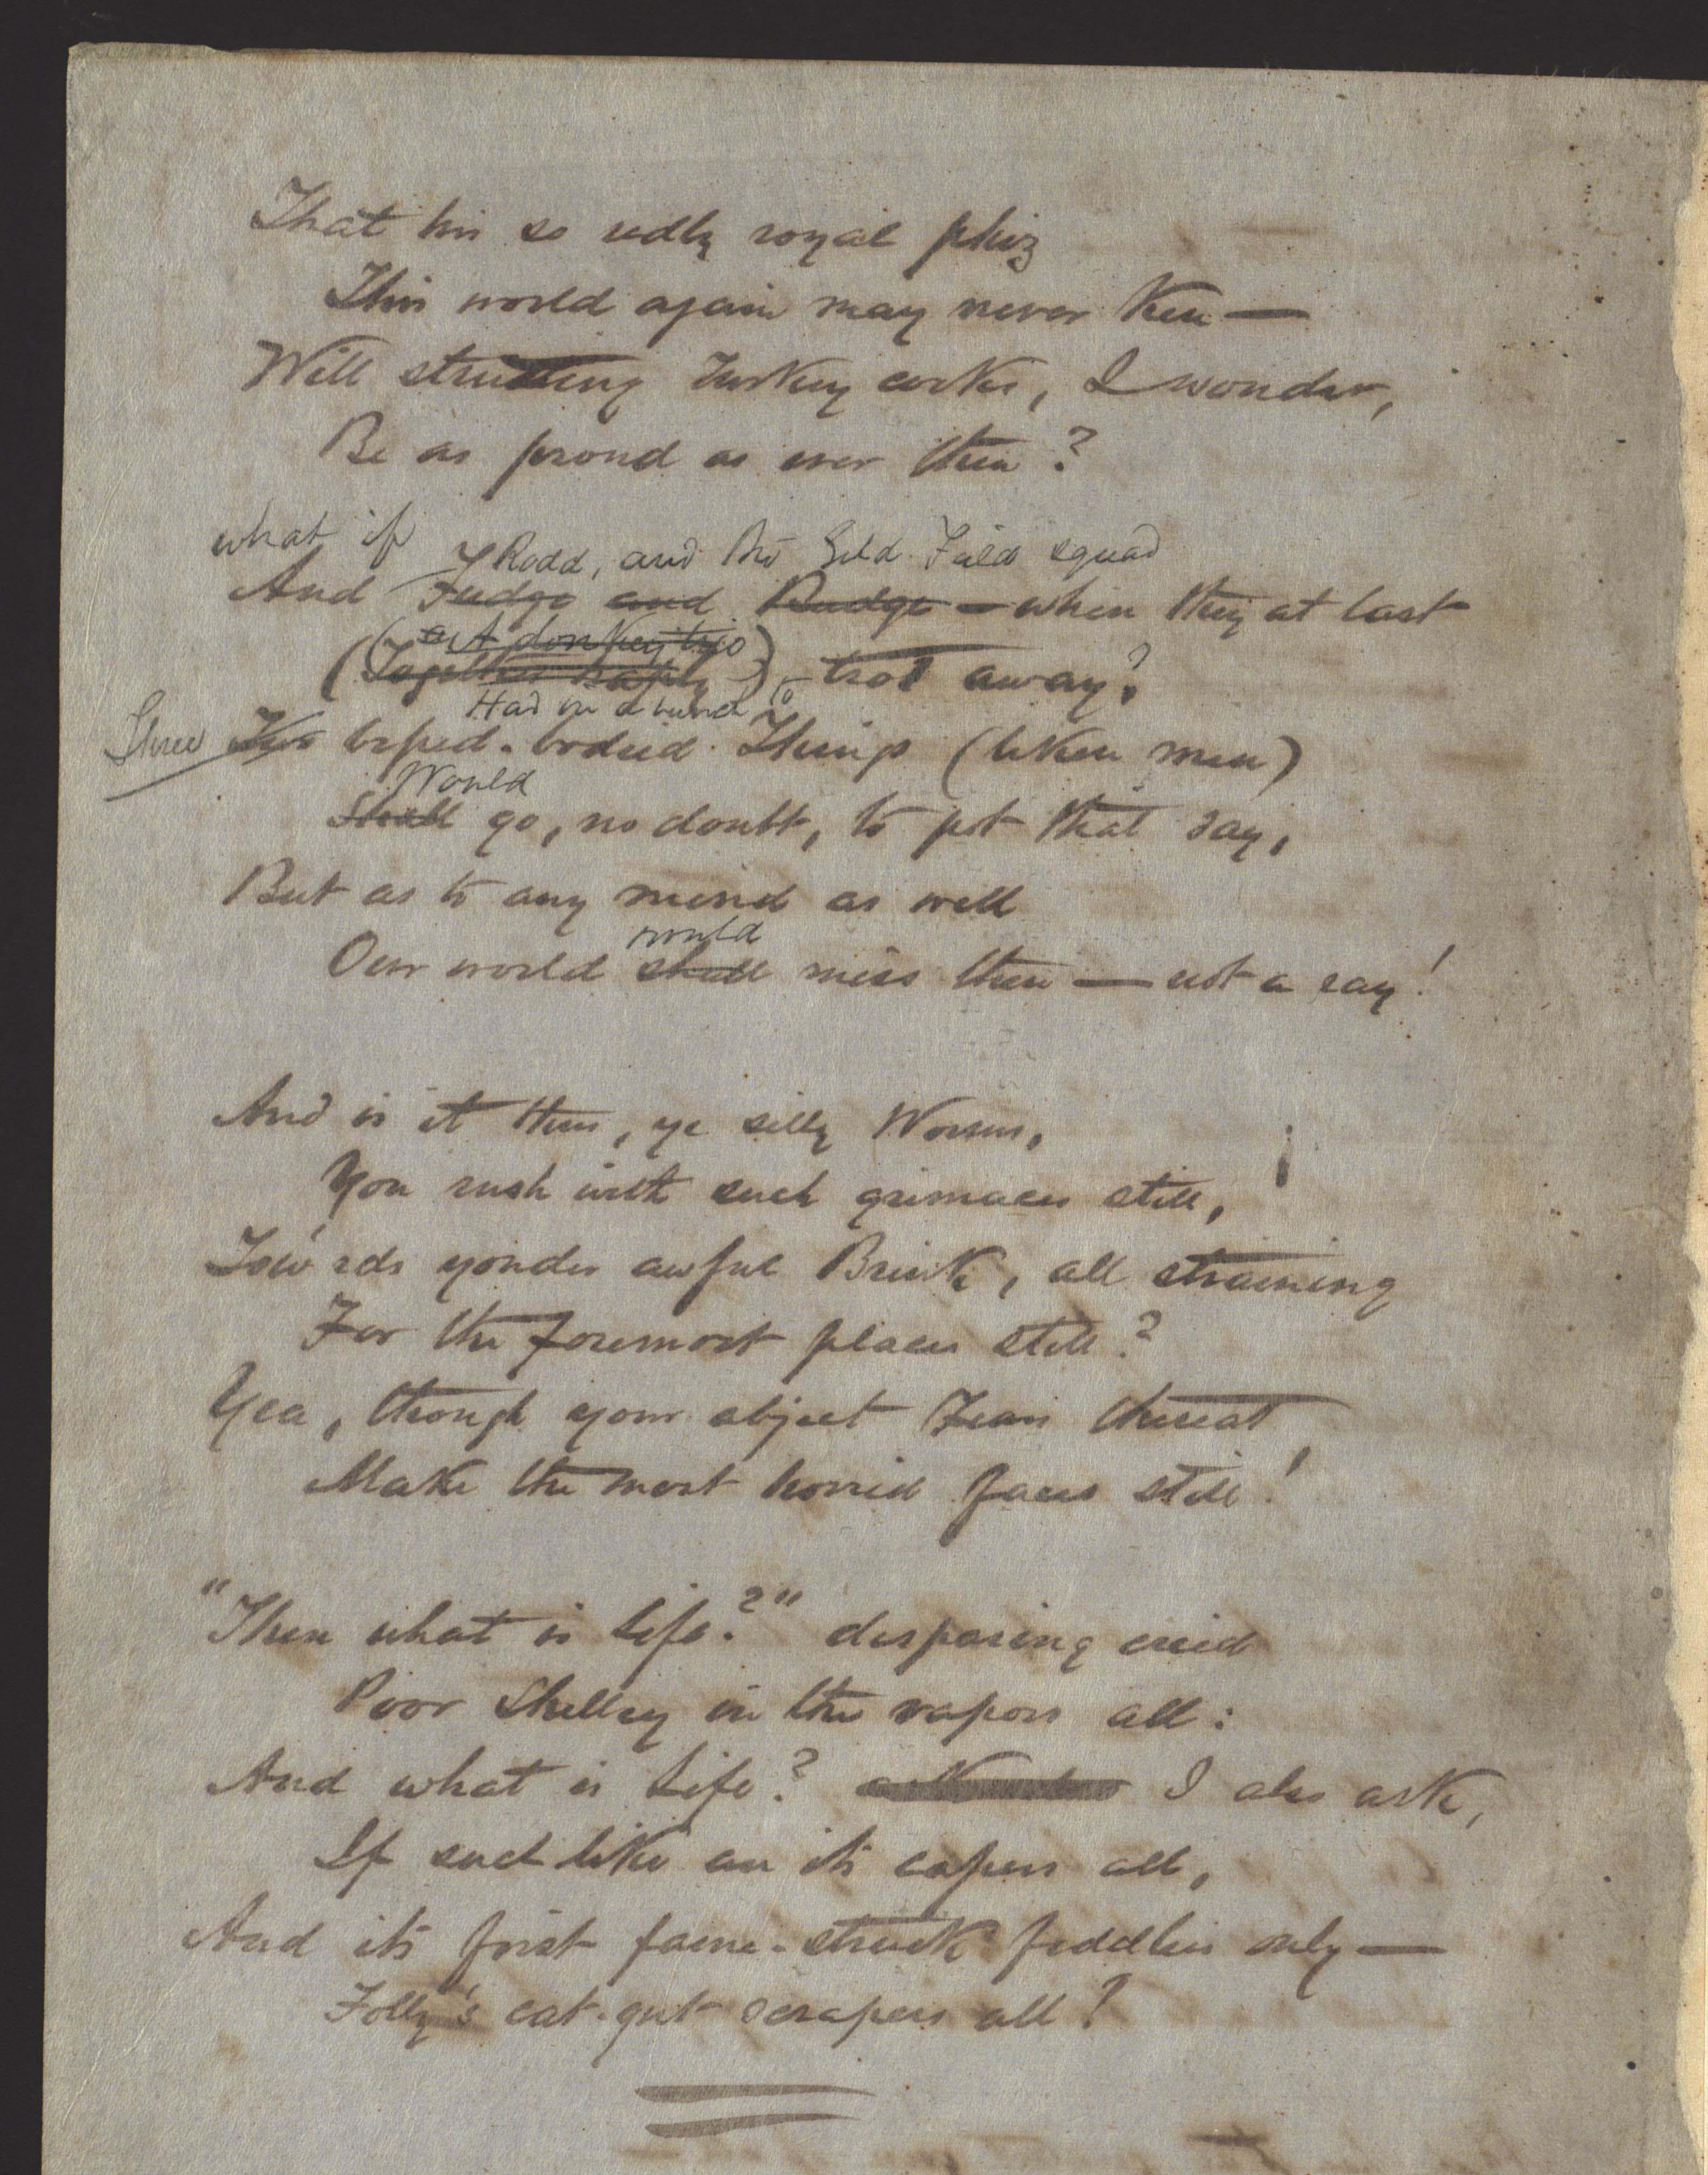 That his so udly royal phiz
This world again may never ken —
Will strutting Turkey cocks, I wonder,
Be as proud as ever then?
what if
Rodd, and his Gold Field squad
And Fudge and Budge — when they at last
A donkey trio
(Together haply) trot away?
Had in a bunch to
Three Two biped-bodied Things (liken men)
Would
Shall go, no doubt, to pot that day,
But as to any mind as well
would
Our world shall miss them — not a ray!
And is it thus, ye silly Worms,
You rush with such grimaces still,
Tow'rds yonder awful Brink, all straining
For the foremost places still?
Yea, though your abject Fears thereat
Make the most horrid faces still!
"Then what is Life?" desparing cried
Poor Shelley in the vapors all:
And what is Life? I also ask,
If such like are its capers all,
And its first fame-struck fiddlers only —
Folly's cat-gut scrapers all?